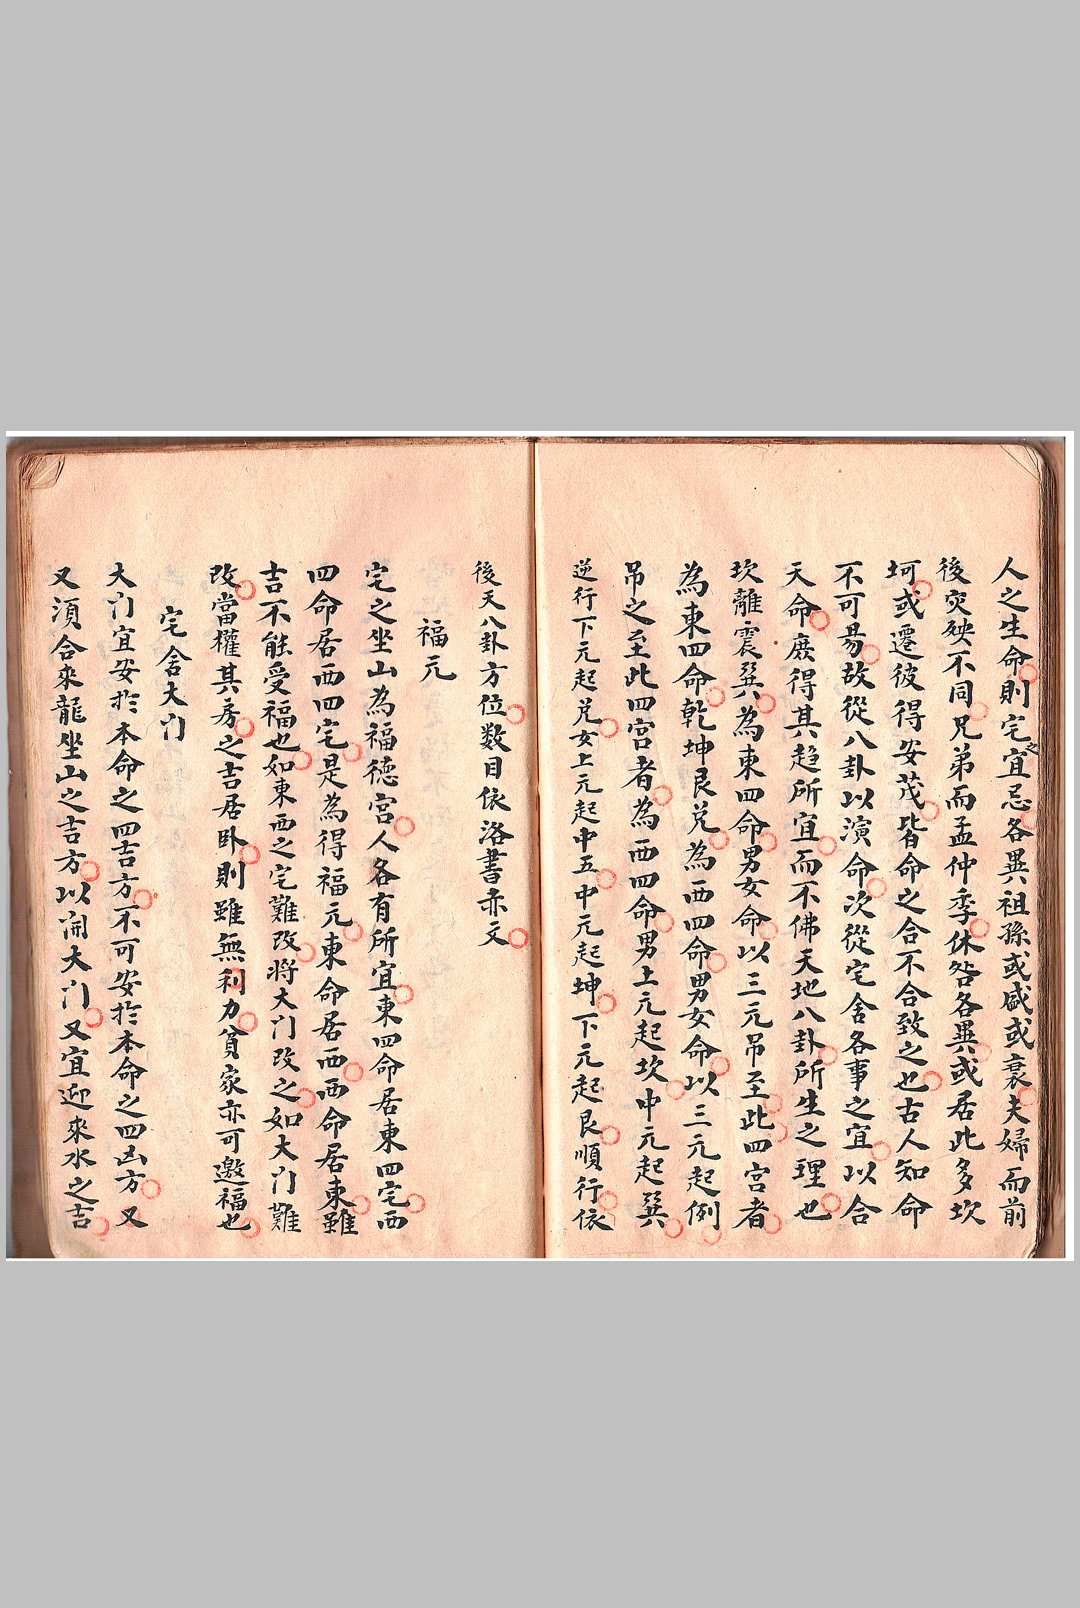 人之生命則宅之宜忌各異祖孫或盛或衰夫婦而前
後灾殃不同兄弟而孟仲季休咎各異或居此多坎
坷或遷彼得安茂皆命之合不合致之也古人知命
不可昜故從八卦以演命次從宅舍各事之宜以合
天命庻得其趋所宜而不佛天地八卦所生之理也
坎離震巽為東四命男女命以三元吊至此四宮者
為東四命乾坤艮兑為西四命男女命以三元起例
吊之至此四宮者為西四命男上元起坎中元起巽
逆行下元起兑女上元起中五中元起坤下元起艮順行依
後天八卦方位数目依洛書赤文
福元
宅之坐山為福德宮人各有所宜東四命居東四宅西
四命居西四宅是為得福元東命居西西命居東雖
吉不能受福也如東西之宅難改将大门改之如大门難
改當權其房之吉居卧則雖無利力貧家亦可邀福也
宅舍大门
大门宜安扵本命之四吉方不可安扵本命之四凶方又
又須合來龍坐山之吉方以開大门又宜迎來水之吉